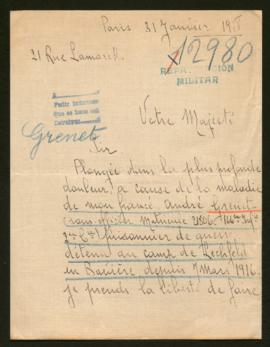 Paris 31 Janvier 1918
21 Rue Lamarck
12980
REPATRIACIÓN
MILITAR
Pedir informes
Grenet
Votre Majesté
Sir.
Plongée dans la plus profonde
douleur, à cause de la maladie
de mon fiancé André Grenet
(sous-officier Matricule 2806
prisonnier de guerre
détenu au camp de Lechfeld
en Bavière depuis 7 Mars 1916
je prends la liberté de faire